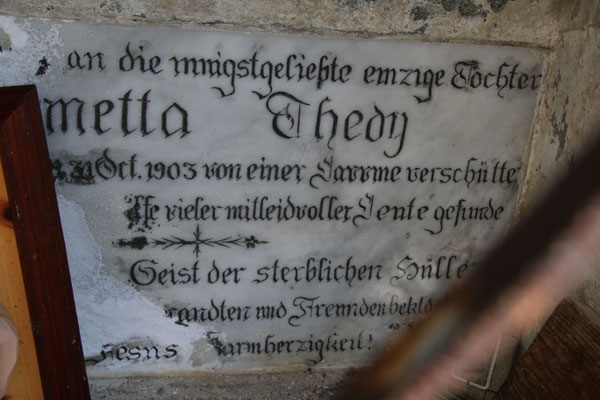 an die innigstgeliebte einzige Tochter
metta Thedy
31 Oct. 1903 von einer Lavvme verschütte
lfe vieler mitleidvoller Leute gefunde
Geist der sterblichen Hülle
andten und Freunden beklag
Jesus armherzigkeit!